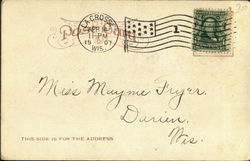 LA CROSSE
APR
11-PM
1907
WIS.
1
Miss Mayme Fryer.
Darien,
Wis.
THIS SIDE IS FOR THE ADDRESS